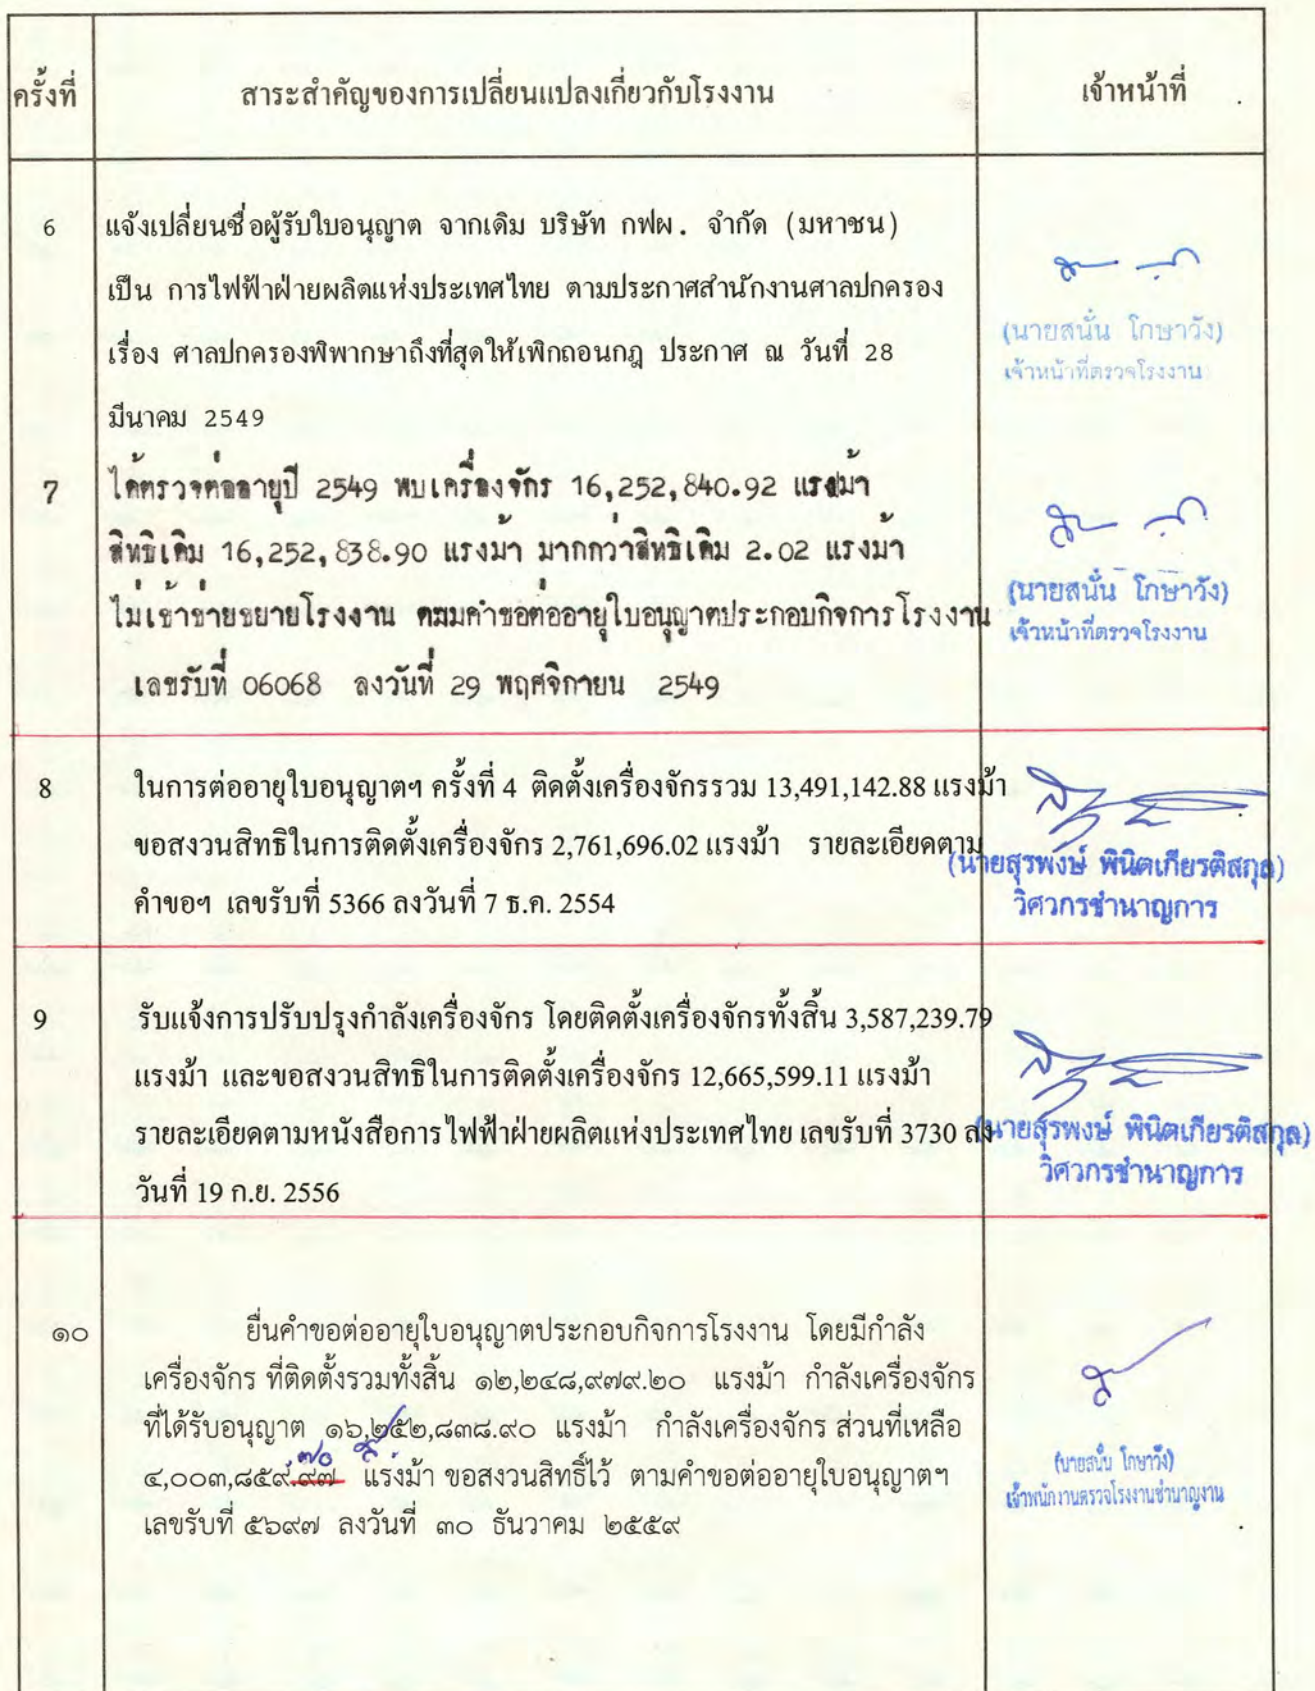 ครั้งที่
สาระสำคัญของการเปลี่ยนแปลงเกี่ยวกับโรงงาน
เจ้าหน้าที่
6
แจ้งเปลี่ยนชื่อผู้รับใบอนุญาต จากเดิม บริษัท กฟผ. จำกัด (มหาชน)
เป็น การไฟฟ้าฝ่ายผลิตแห่งประเทศไทย ตามประกาศสำนักงานศาลปกครอง
เรื่อง ศาลปกครองพิพากษาถึงที่สุดให้เพิกถอนกฎ ประกาศ ณ วันที่ 28
มีนาคม 2549
(นายสนั่น โกษาวัง)
เจ้าหน้าที่ตรวจโรงงาน
7
ได้ตรวจต่ออายุปี 2549 พบเครื่องจักร 16,252,840.92 แรงม้า
สิทธิเดิม 16,252,838.90 แรงม้า มากกว่าสิทธิเดิม 2.02 แรงม้า
ไม่เข้าข่ายขยายโรงงาน ตามคำขอต่ออายุใบอนุญาตประกอบกิจการโรงงาน
เลขรับที่ 06068 ลงวันที่ 29 พฤศจิกายน 2549
(นายสนั่น โกษาวัง)
เจ้าหน้าที่ตรวจโรงงาน
8
ในการต่ออายุใบอนุญาตฯ ครั้งที่ 4 ติดตั้งเครื่องจักรรวม 13,491,142.88 แรงม้า
ขอสงวนสิทธิในการติดตั้งเครื่องจักร 2,761,696.02 แรงม้า รายละเอียดตาม
คำขอฯ เลขรับที่ 5366 ลงวันที่ 7 ธ.ค. 2554
(นายสุรพงษ์ พินิตเกียรติสกุล)
วิศวกรชำนาญการ
9
รับแจ้งการปรับปรุงกำลังเครื่องจักร โดยติดตั้งเครื่องจักรทั้งสิ้น 3,587,239.79
แรงม้า และขอสงวนสิทธิในการติดตั้งเครื่องจักร 12,665,599.11 แรงม้า
รายละเอียดตามหนังสือการไฟฟ้าฝ่ายผลิตแห่งประเทศไทย เลขรับที่ 3730 ลง
วันที่ 19 ก.ย. 2556
(นายสุรพงษ์ พินิตเกียรติสกุล)
วิศวกรชำนาญการ
๑๐
ยื่นคำขอต่ออายุใบอนุญาตประกอบกิจการโรงงาน โดยมีกำลัง
เครื่องจักร ที่ติดตั้งรวมทั้งสิ้น ๑๒,๒๔๘,๙๗๙.๒๐ แรงม้า กำลังเครื่องจักร
ที่ได้รับอนุญาต ๑๖,๒๕๒,๘๓๘.๙๐ แรงม้า กำลังเครื่องจักร ส่วนที่เหลือ
.๗๐
๔,๐๐๓,๘๕๙.๙๗ แรงม้า ขอสงวนสิทธิ์ไว้ ตามคำขอต่ออายุใบอนุญาตฯ
เลขรับที่ ๕๖๙๗ ลงวันที่ ๓๐ ธันวาคม ๒๕๕๙
(นายสนั่น โกษาวัง)
เจ้าพนักงานตรวจโรงงานชำนาญงาน